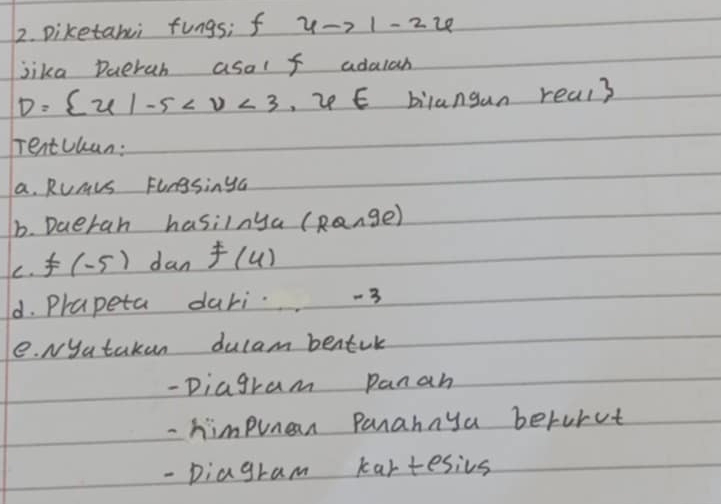 2. Diketahui fungsi f x -> 1 - 2x
jika Daerah asal f adalah
D = {x | -5 < x < 3, x ∈ bilangan real}
Tentukan:
a. Rumus Fungsinya
b. Daerah hasilnya (Range)
c. f (-5) dan f (4)
d. Prapeta dari ... -3
e. Nyatakan dalam bentuk
- Diagram Panah
- himpunan Panahnya berurut
- Diagram kartesius